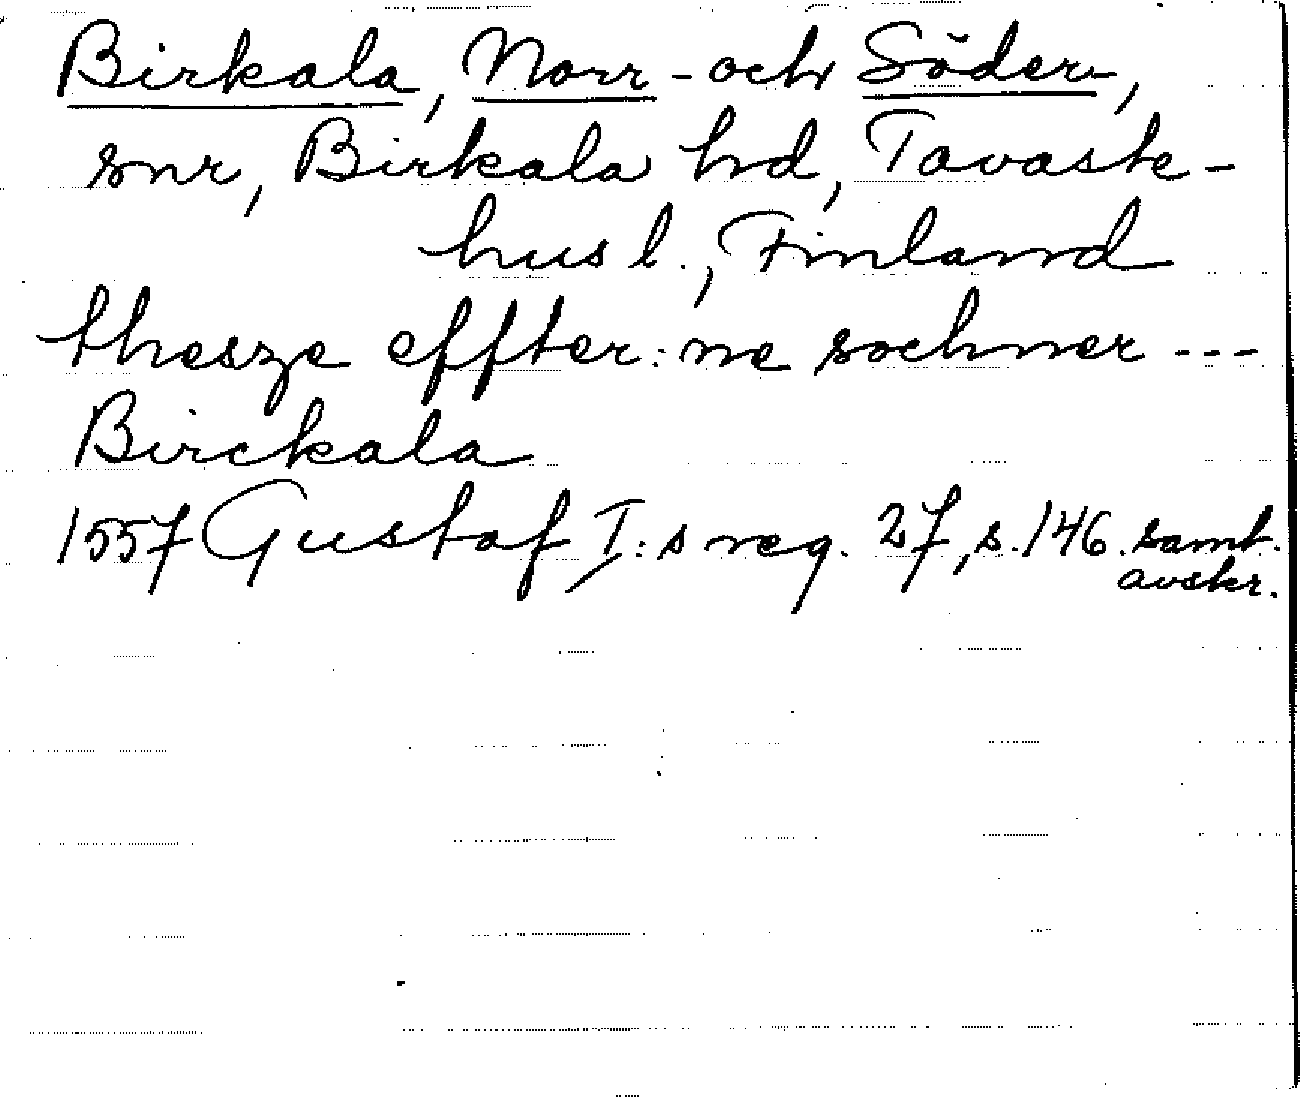 Birkala, Norr- och Söder-,
snr, Birkala hd, Tavaste-
hus l., Finland
thesze effter:ne sochner ---
Birckala
1557 Gustaf I:s reg. 27, s. 146. samt.
avskr.